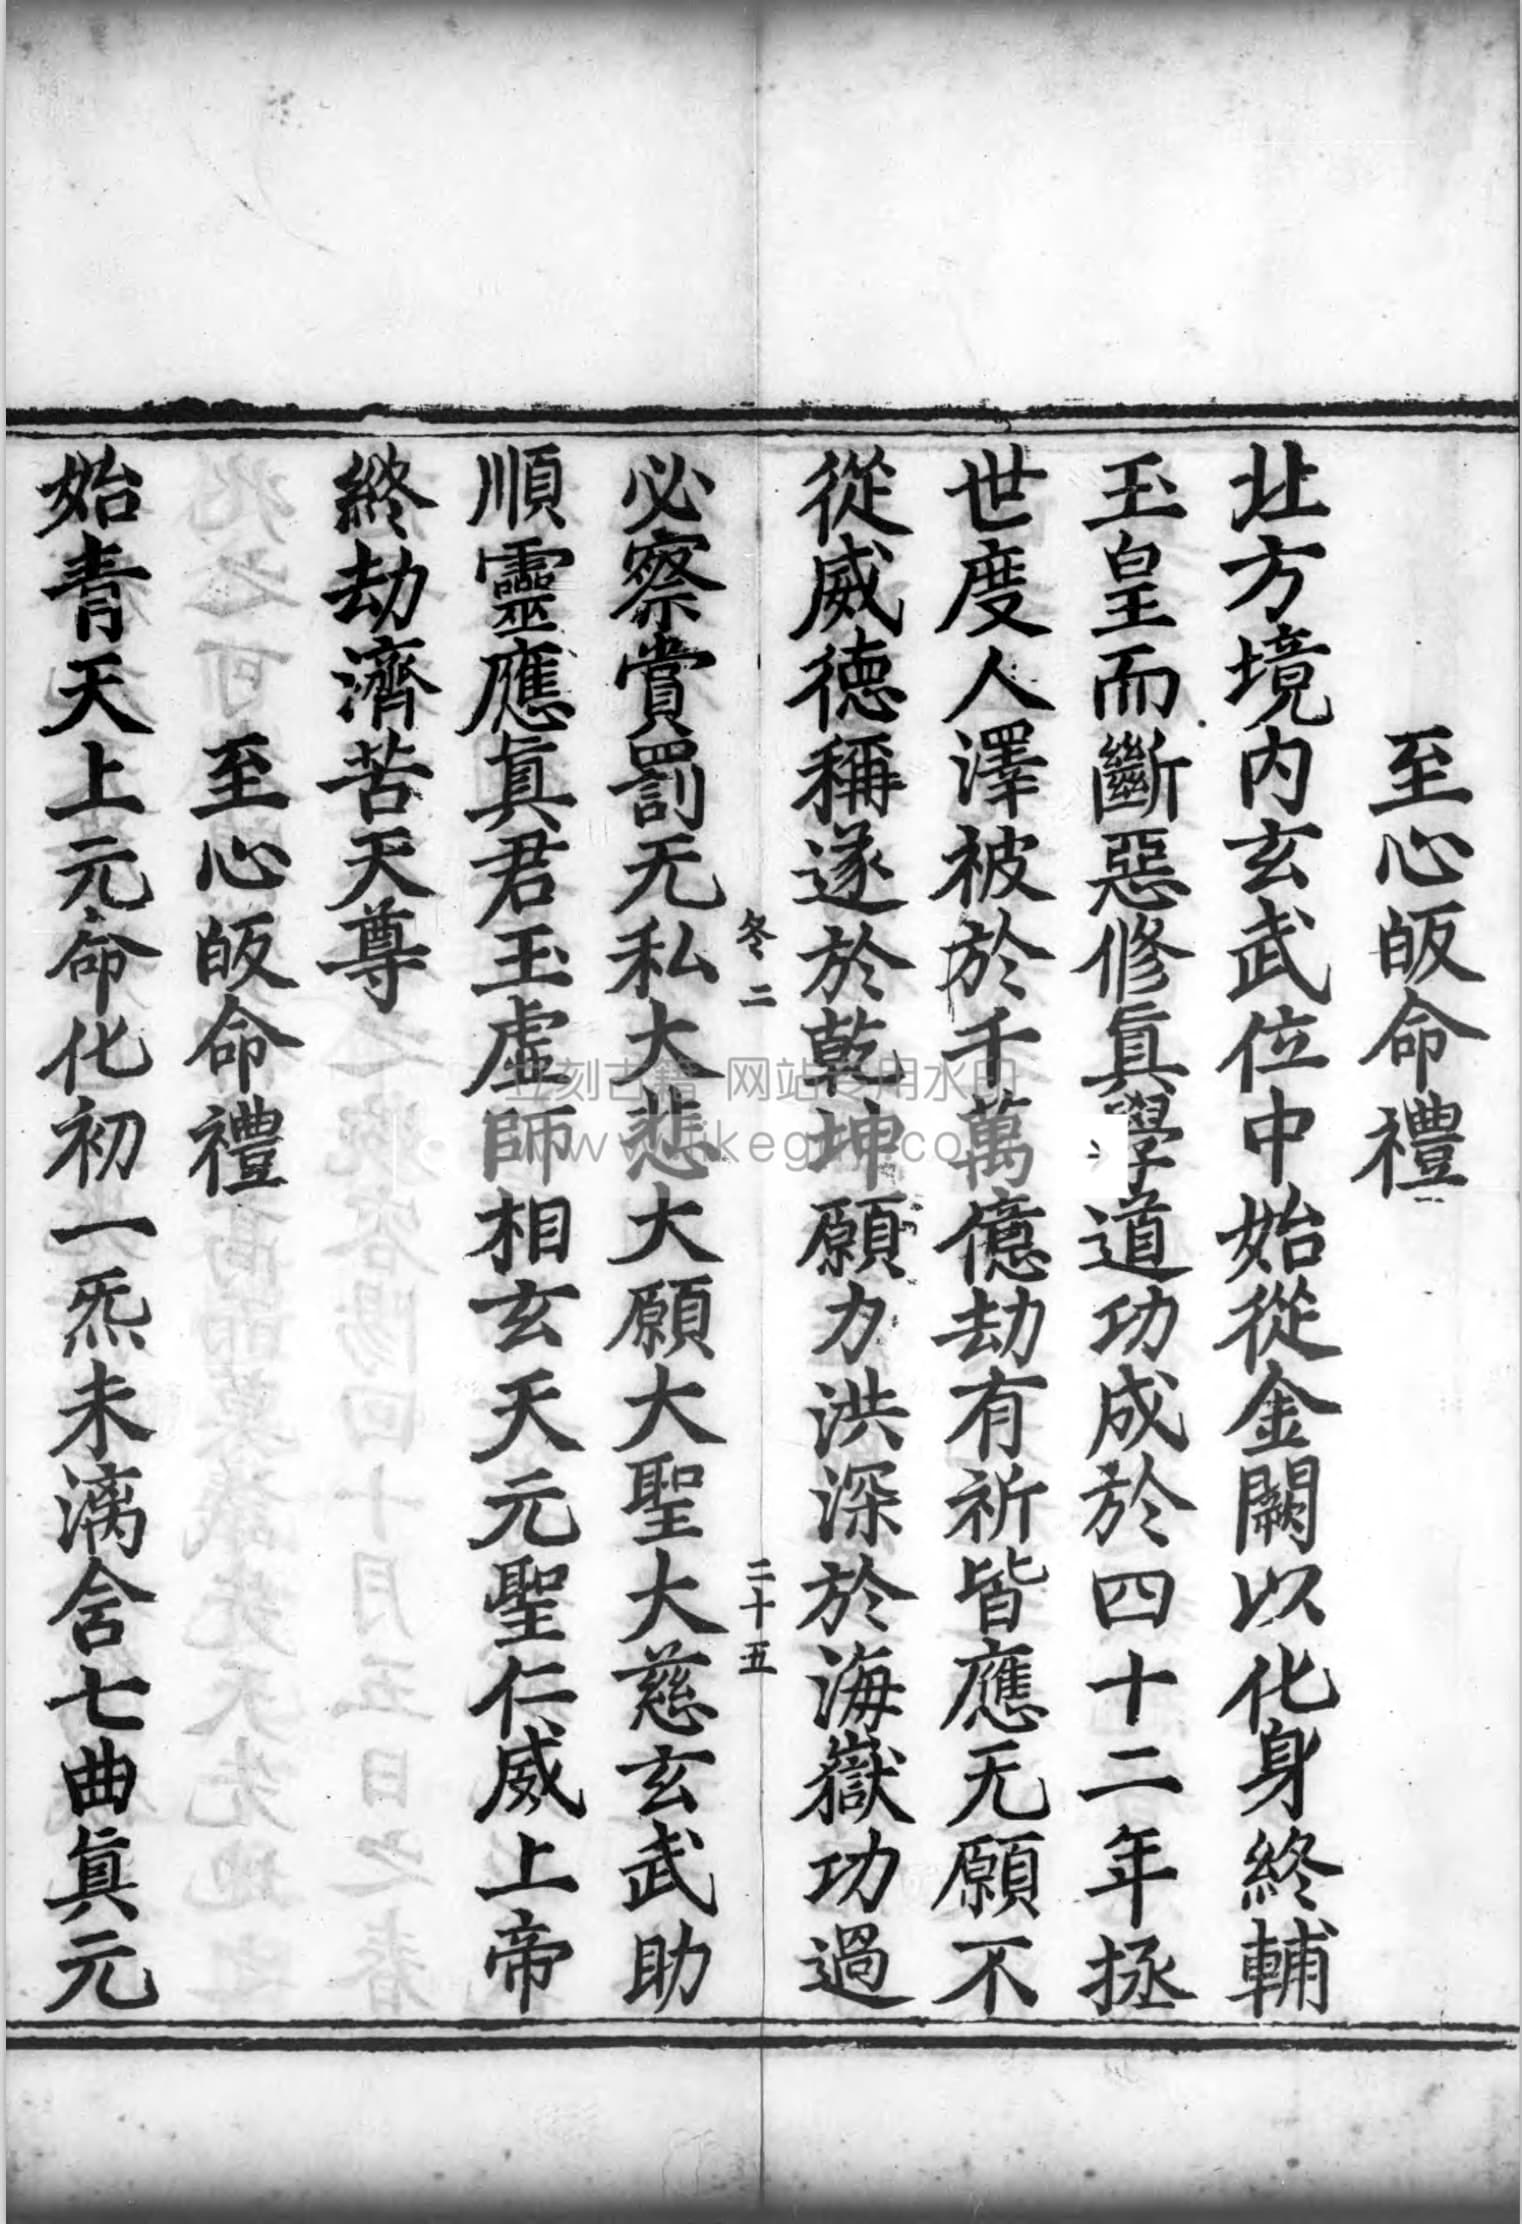 至心皈命禮
北方境内玄武位中始從金闕以化身終輔
玉皇而斷惡修眞學道功成於四十二年拯
世度人澤被於千萬億劫有祈皆應无願不
從威德稱遂於乾坤願力洪深於海嶽功過
冬二 二十五
必察賞罰无私大悲大願大聖大慈玄武助
順靈應眞君玉虛師相玄天元聖仁威上帝
終劫濟苦天尊
至心皈命禮
始青天上元命化初一炁未漓含七曲眞元
立刻古籍 网站专用水印